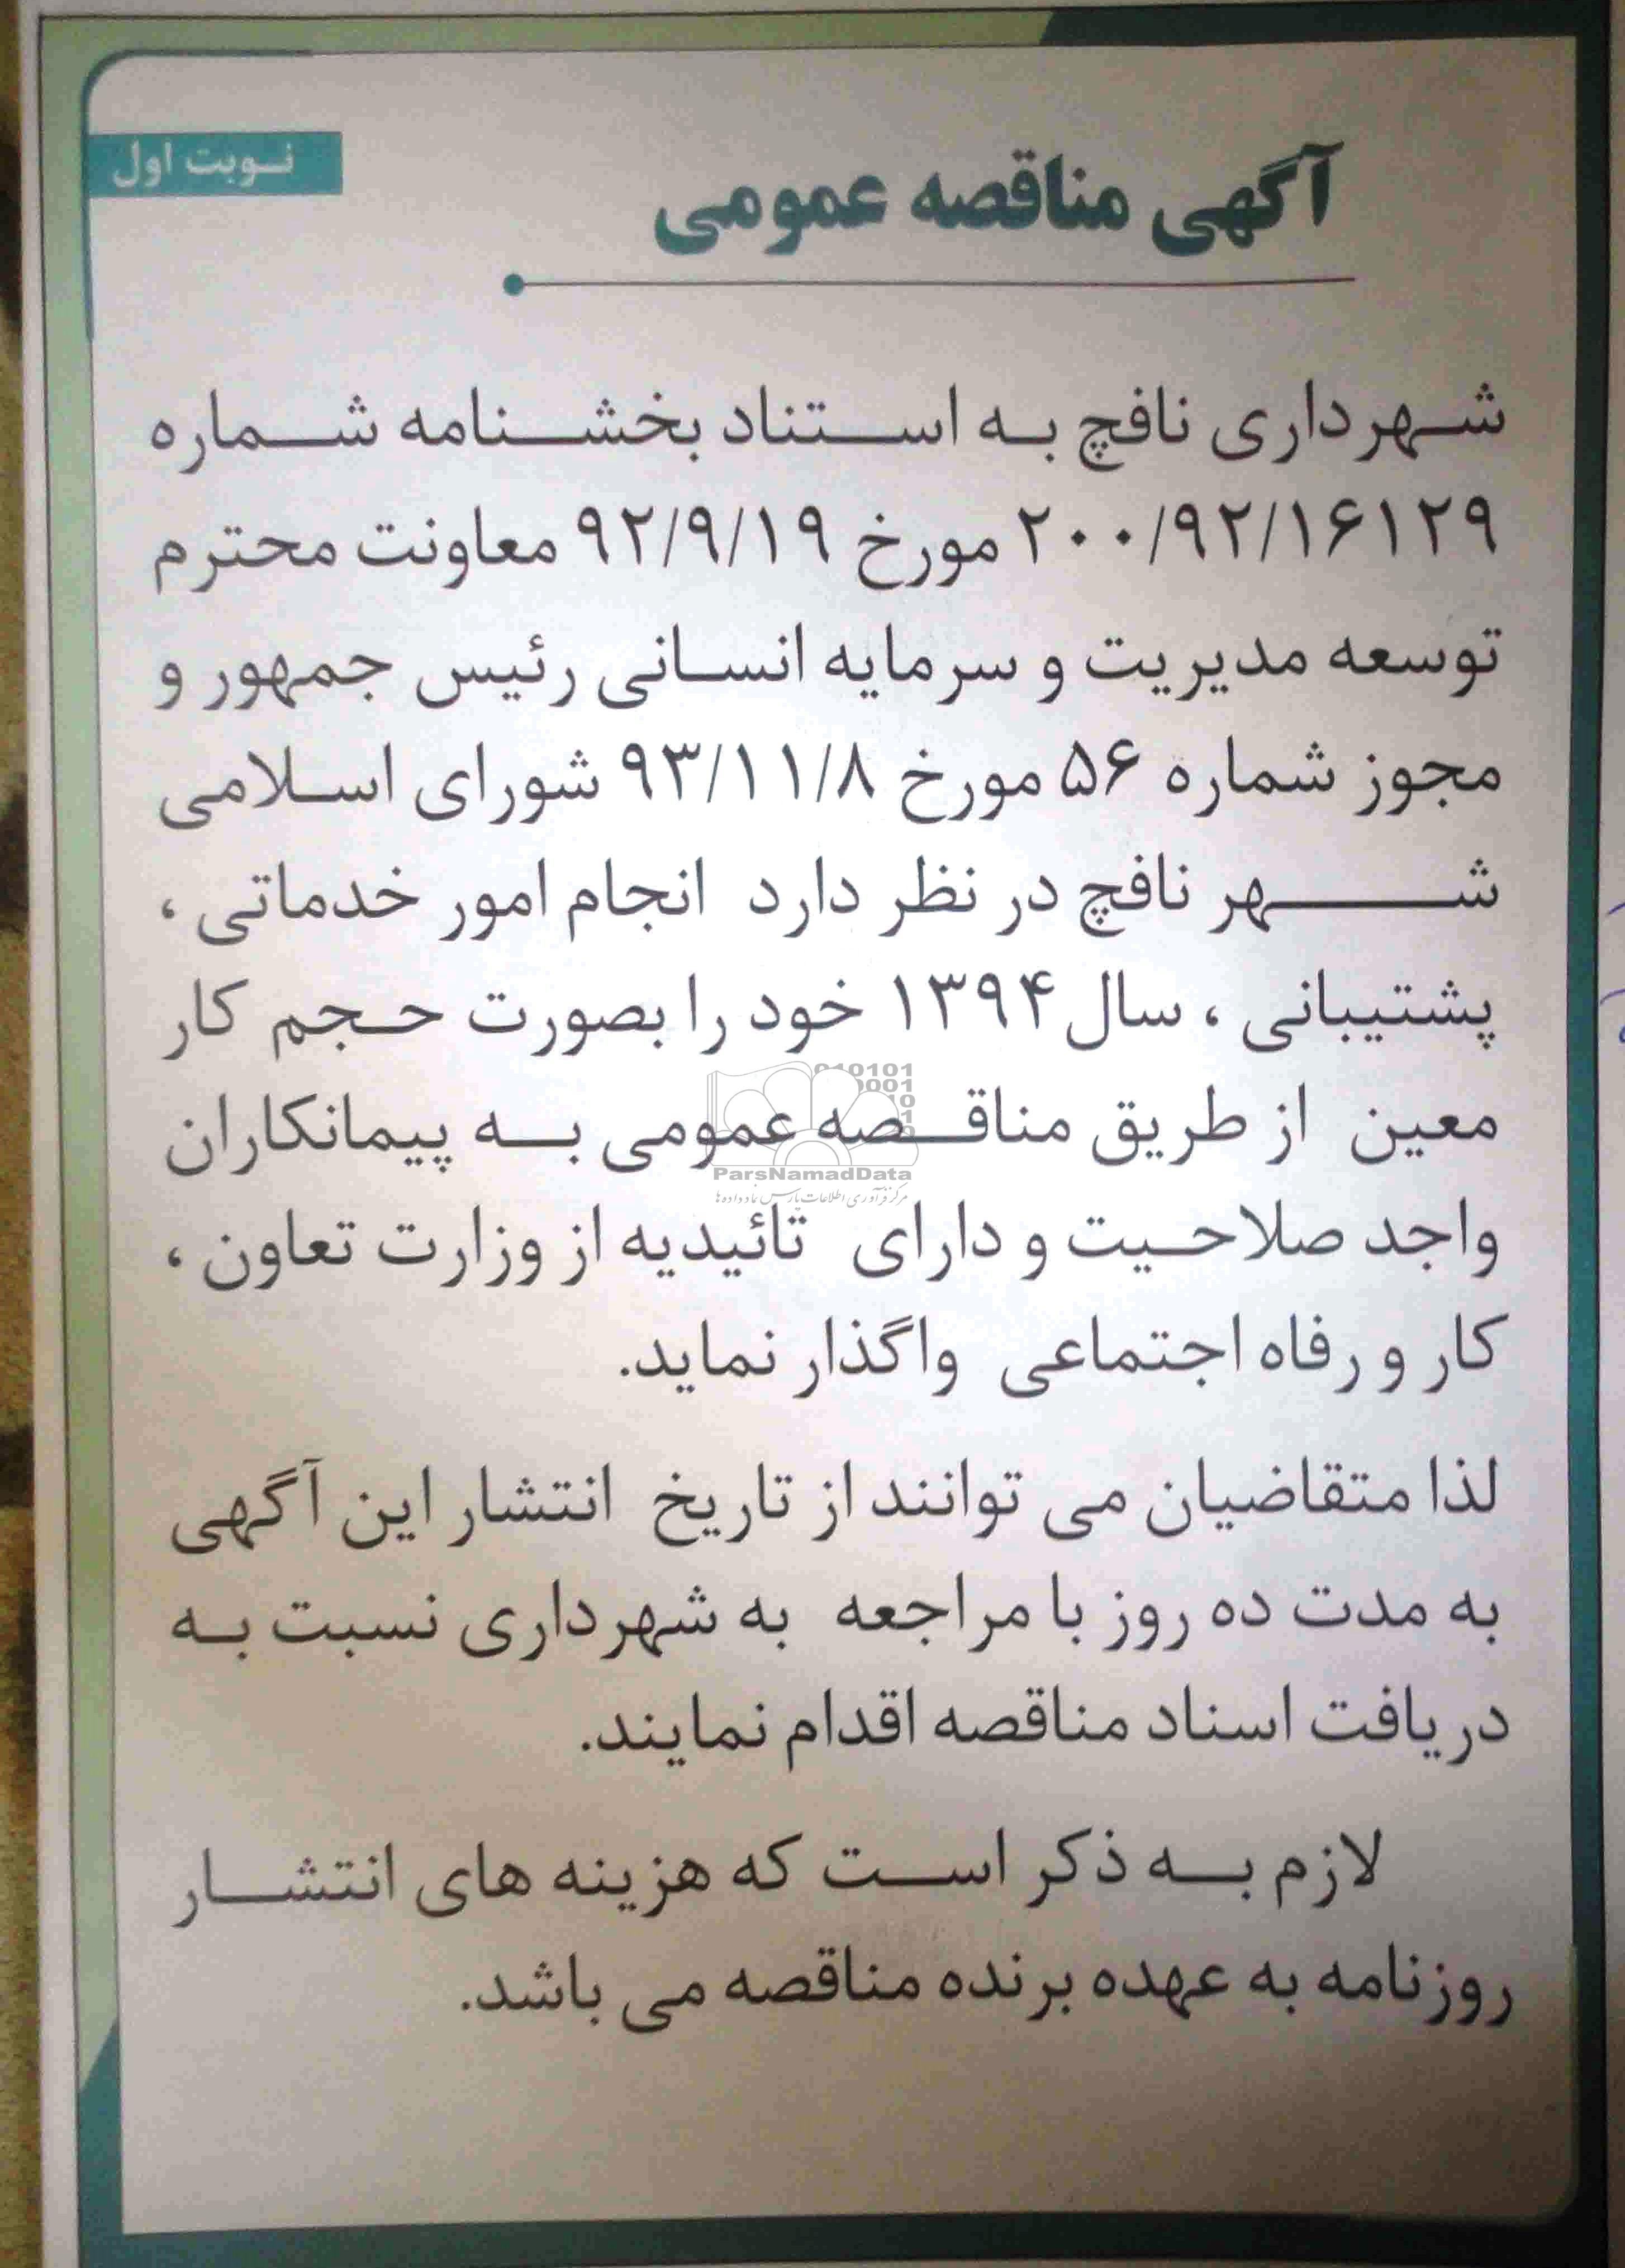 نوبت اول
آگهی مناقصه عمومی
شهرداری نافچ به استناد بخشنامه شماره
۲۰۰/۹۲/۱۶۱۲۹ مورخ ۹۲/۹/۱۹ معاونت محترم
توسعه مدیریت و سرمایه انسانی رئیس جمهور و
مجوز شماره ۵۶ مورخ ۹۳/۱۱/۸ شورای اسلامی
شهر نافچ در نظر دارد انجام امور خدماتی ،
پشتیبانی ، سال ۱۳۹۴ خود را بصورت حجم کار
معین از طریق مناقصه عمومی به پیمانکاران
واجد صلاحیت و دارای تائیدیه از وزارت تعاون ،
کار و رفاه اجتماعی واگذار نماید.
لذا متقاضیان می توانند از تاریخ انتشار این آگهی
به مدت ده روز با مراجعه به شهرداری نسبت به
دریافت اسناد مناقصه اقدام نمایند.
لازم به ذکر است که هزینه های انتشار
روزنامه به عهده برنده مناقصه می باشد.
ParsNamadData
مرکز فرآوری اطلاعات پارس نماد داده ها